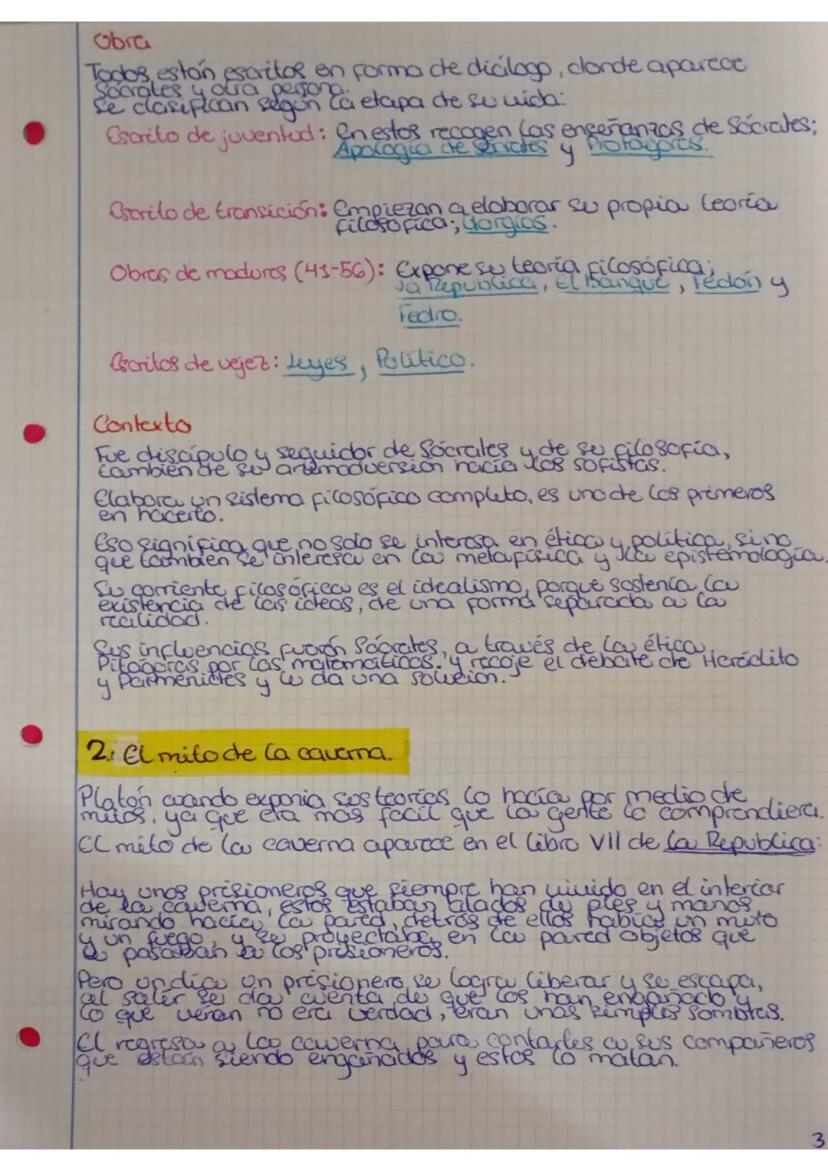 Obra
Todos están escritos en forma de diálogo, donde aparece
Sócrates y otra persona.
Se clasifican según la etapa de su vida:
Escrito de juventud: En estos recogen las enseñanzas de Sócrates;
Apología de Sócrates y Protágoras.
Escrito de transición: Empiezan a elaborar su propia teoría
filosófica; Gorgias.
Obras de madures (41-56): Expone su teoría filosófica;
La Republica, El Banque, Fedón y
Fedro.
Escritos de vejez: Leyes, Político.
Contexto
Fue discípulo y seguidor de Sócrates y de su filosofía,
también de su animadversión hacia los sofistas.
Elabora un sistema filosófico completo, es uno de los primeros
en hacerlo.
Eso significa que no solo se interesa en ética y política, sino
que también se interesa en la metafísica y la epistemología.
Su corriente filosófica es el idealismo, porque sostenía la
existencia de las ideas, de una forma separada a la
realidad.
Sus influencias fuerón Sócrates, a través de la ética,
Pitágoras por las matemáticas. y recoje el debate de Heráclito
y Parménides y le da una solución.
2. El mito de la caverna.
Platón cuando exponia sus teorías lo hacía por medio de
mitos, ya que era más facil que la gente lo comprendiera.
El mito de la caverna aparece en el libro VII de La Republica:
Hay unos prisioneros que siempre han vivido en el interior
de la caverna, estos estaban atados de pies y manos
mirando hacia la pared, detrás de ellos había un muro
y un fuego, y se proyectaba en la pared objetos que
pasaban a los prisioneros.
Pero un día un prisionero se logra liberar y se escapa,
al salir se da cuenta de que los han engañado y
lo que veían no era verdad, eran unas simples sombras.
El regresa a la caverna para contarles a sus compañeros
que están siendo engañados y estos lo matan.
3